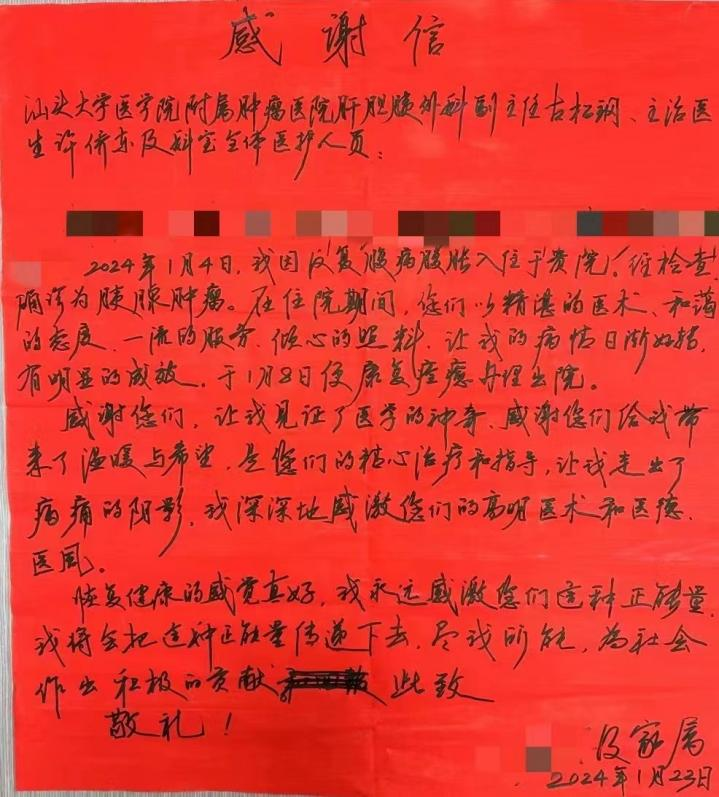 感谢信
汕头大学医学院附属肿瘤医院肝胆胰外科副主任古松钢、主治医
生许侨东及科室全体医护人员：
2024年1月4日，我因反复腹痛腹胀入住于贵院。经检查
确诊为胰腺肿瘤。在住院期间，您们以精湛的医术、和蔼
的态度、一流的服务、倾心的照料，让我的病情日渐好转，
有明显的成效。于1月8日便康复痊愈办理出院。
感谢您们，让我见证了医学的神奇、感谢您们给我带
来了温暖与希望，是您们的精心治疗和指导，让我走出了
病痛的阴影，我深深地感激您们的高明医术和医德、
医风。
恢复健康的感觉真好，我永远感激您们这种正能量，
我将会把这种正能量传递下去，尽我所能，为社会
作出积极的贡献 此致
敬礼！
及家属
2024年1月23日